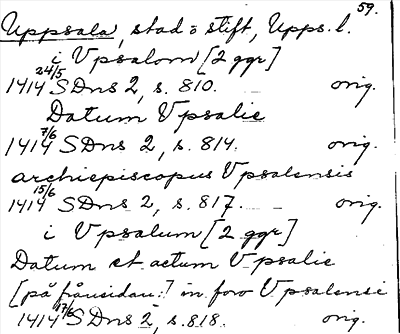 59.
Uppsala, stad o stift, Upps. l.
i Vpsalom [2 ggr]
1414 24/5 SDns 2, s. 810. orig.
Datum Vpsalie
1414 7/6 SDns 2, s. 814. orig.
archiepiscopus Vpsalensis
1414 15/6 SDns 2, s. 817. orig.
i Vpsalum [2 ggr]
Datum et actum Vpsalie
[på frånsidan:] in foro Vpsalensi
1414 17/6 SDns 2, s. 818. orig.